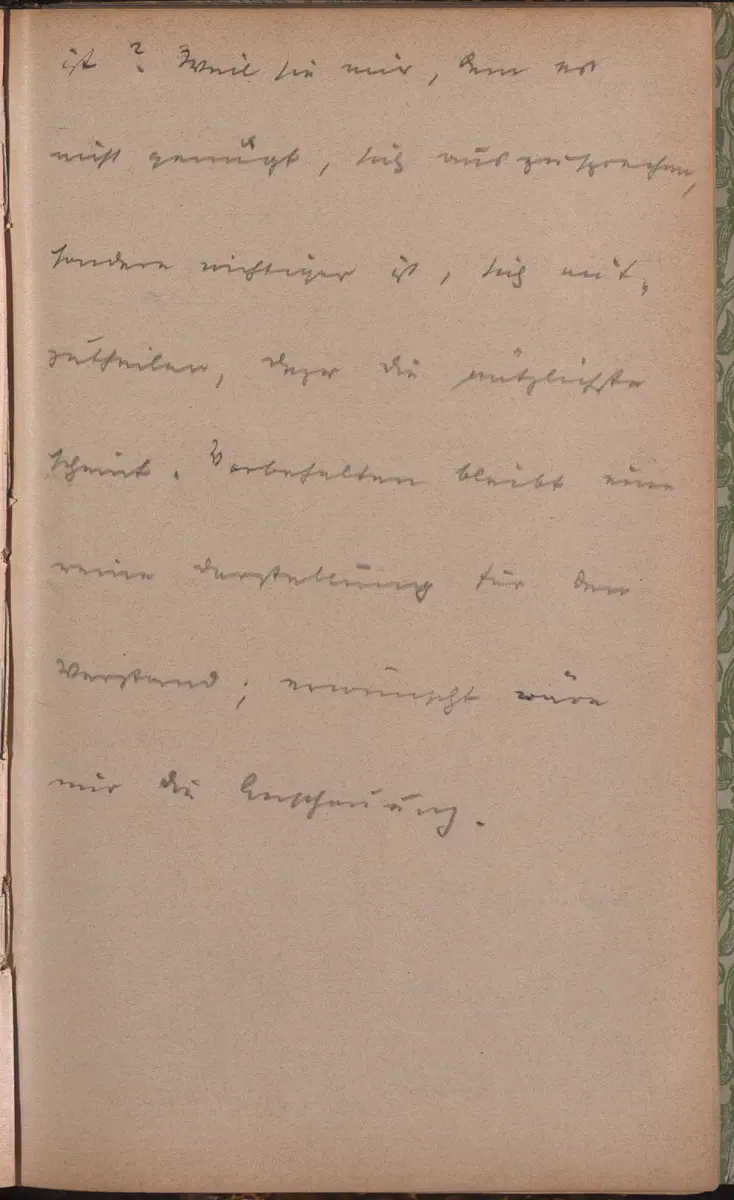 ist? Weil sie mir, dem es
nicht genügt, sich auszusprechen,
sondern wichtiger ist, sich mit-
zutheilen, dazu die nützlichste
scheint. Vorbehalten bleibt eine
reine Darstellung für den
Verstand; erwünscht wäre
mir die Anschauung.